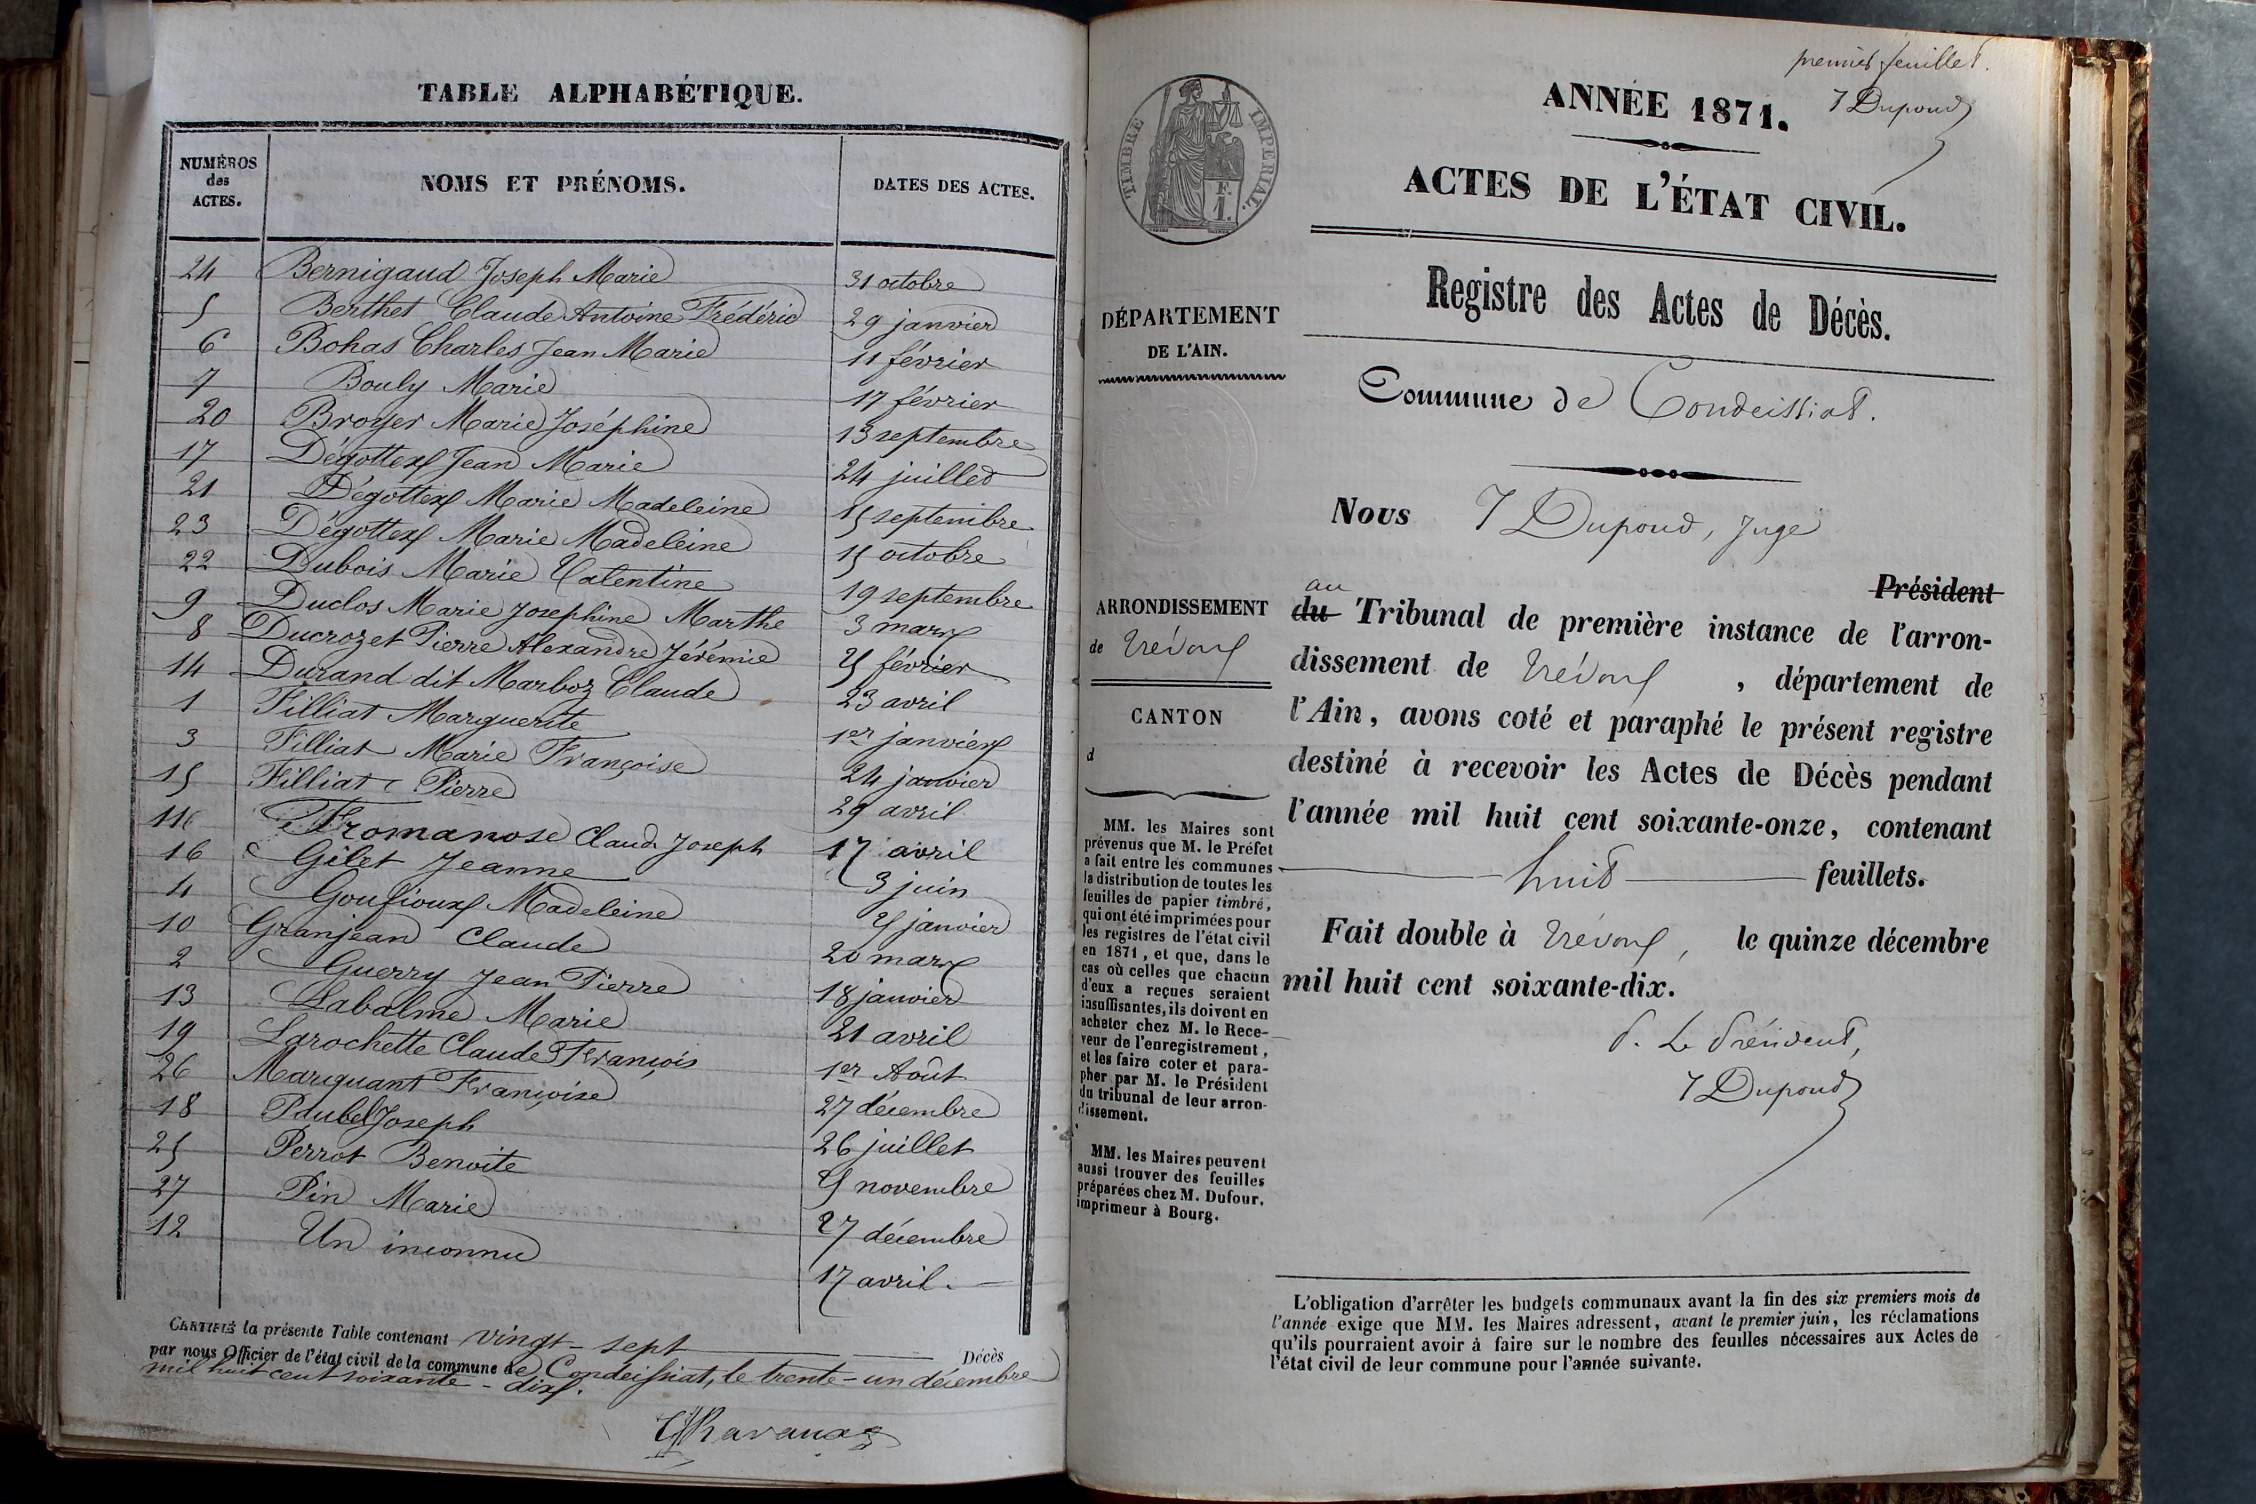 TABLE ALPHABÉTIQUE.
NUMÉROS des ACTES.
NOMS ET PRÉNOMS.
DATES DES ACTES.
24 Bernigaud Joseph Marie 31 octobre
5 Berthet Claude Antoine Frédéric 29 janvier
6 Bohas Charles Jean Marie 11 février
7 Bouly Marie 17 février
20 Broyer Marie Joséphine 13 septembre
17 Dégottex Jean Marie 24 juillet
21 Dégottex Marie Madeleine 15 septembre
23 Dégottex Marie Madeleine 15 octobre
22 Dubois Marie Valentine 19 septembre
9 Duclos Marie Josephine Marthe 3 mars
8 Ducrozet Pierre Alexandre Jérémie 25 février
14 Durand dit Marboz Claude 23 avril
1 Filliat Marguerite 1er janvier
3 Filliat Marie Françoise 24 janvier
15 Filliat Pierre 29 avril
11 Fromanose Claude Joseph 17 avril
16 Gilet Jeanne 3 juin
4 Goufioux Madeleine janvier
10 Granjean Claude 20 mars
2 Guerry Jean Pierre 18 janvier
13 Labalme Marie 21 avril
19 Larochette Claude François 1er Août
26 Marquant Françoise 27 décembre
18 Paubel Joseph 26 juillet
25 Perrot Benoite novembre
27 Pin Marie 27 décembre
12 Un inconnu 17 avril.
CERTIFIÉ la présente Table contenant vingt-sept Décès
par nous Officier de l'état civil de la commune de Condeissiat, le trente-un décembre
mil huit cent soixante-dix.
premier feuillet.
J Dupond
TIMBRE IMPERIAL.
F. 1.
ANNÉE 1871.
ACTES DE L'ÉTAT CIVIL.
Registre des Actes de Décès.
DÉPARTEMENT
DE L'AIN.
Commune de Condeissiat.
Nous J Dupond, Juge
Président
au
du Tribunal de première instance de l'arron-
dissement de Trévoux, département de
l'Ain, avons coté et paraphé le présent registre
destiné à recevoir les Actes de Décès pendant
l'année mil huit cent soixante-onze, contenant
huit feuillets.
Fait double à Trévoux, le quinze décembre
mil huit cent soixante-dix.
P. Le Président,
J Dupond
ARRONDISSEMENT
de Trévoux
CANTON
d
MM. les Maires sont
prévenus que M. le Préfet
a fait entre les communes
la distribution de toutes les
feuilles de papier timbré,
qui ont été imprimées pour
les registres de l'état civil
en 1871, et que, dans le
cas où celles que chacun
d'eux a reçues seraient
insuffisantes, ils doivent en
acheter chez M. le Rece-
veur de l'enregistrement,
et les faire coter et para-
pher par M. le Président
du tribunal de leur arron-
dissement.
MM. les Maires peuvent
aussi trouver des feuilles
préparées chez M. Dufour,
imprimeur à Bourg.
L'obligation d'arrêter les budgets communaux avant la fin des six premiers mois de
l'année exige que MM. les Maires adressent, avant le premier juin, les réclamations
qu'ils pourraient avoir à faire sur le nombre des feuilles nécessaires aux Actes de
l'état civil de leur commune pour l'année suivante.